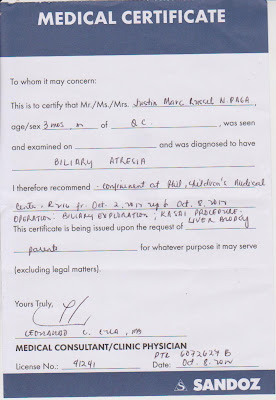 MEDICAL CERTIFICATE
To whom it may concern:
This is to certify that Mr./Ms./Mrs. Justin Marc N. RAGA
age/sex 3 mos, m of Q.C. , was seen
and examined on and was diagnosed to have
BILIARY ATRESIA
I therefore recommend - confinement at Phil. Children's Medical
Center. fr Oct. 2, 2012 Oct. 8, 2012
OPERATION: BILIARY EXPLORATION, KASAI PROCEDURE,
LIVER BIOPSY
This certificate is being issued upon the request of
parents for whatever purpose it may serve
(excluding legal matters).
Yours Truly,
MD
MEDICAL CONSULTANT/CLINIC PHYSICIAN
PTR 6072624 B
License No.: 91241 Date: Oct. 8, 2012
SANDOZ